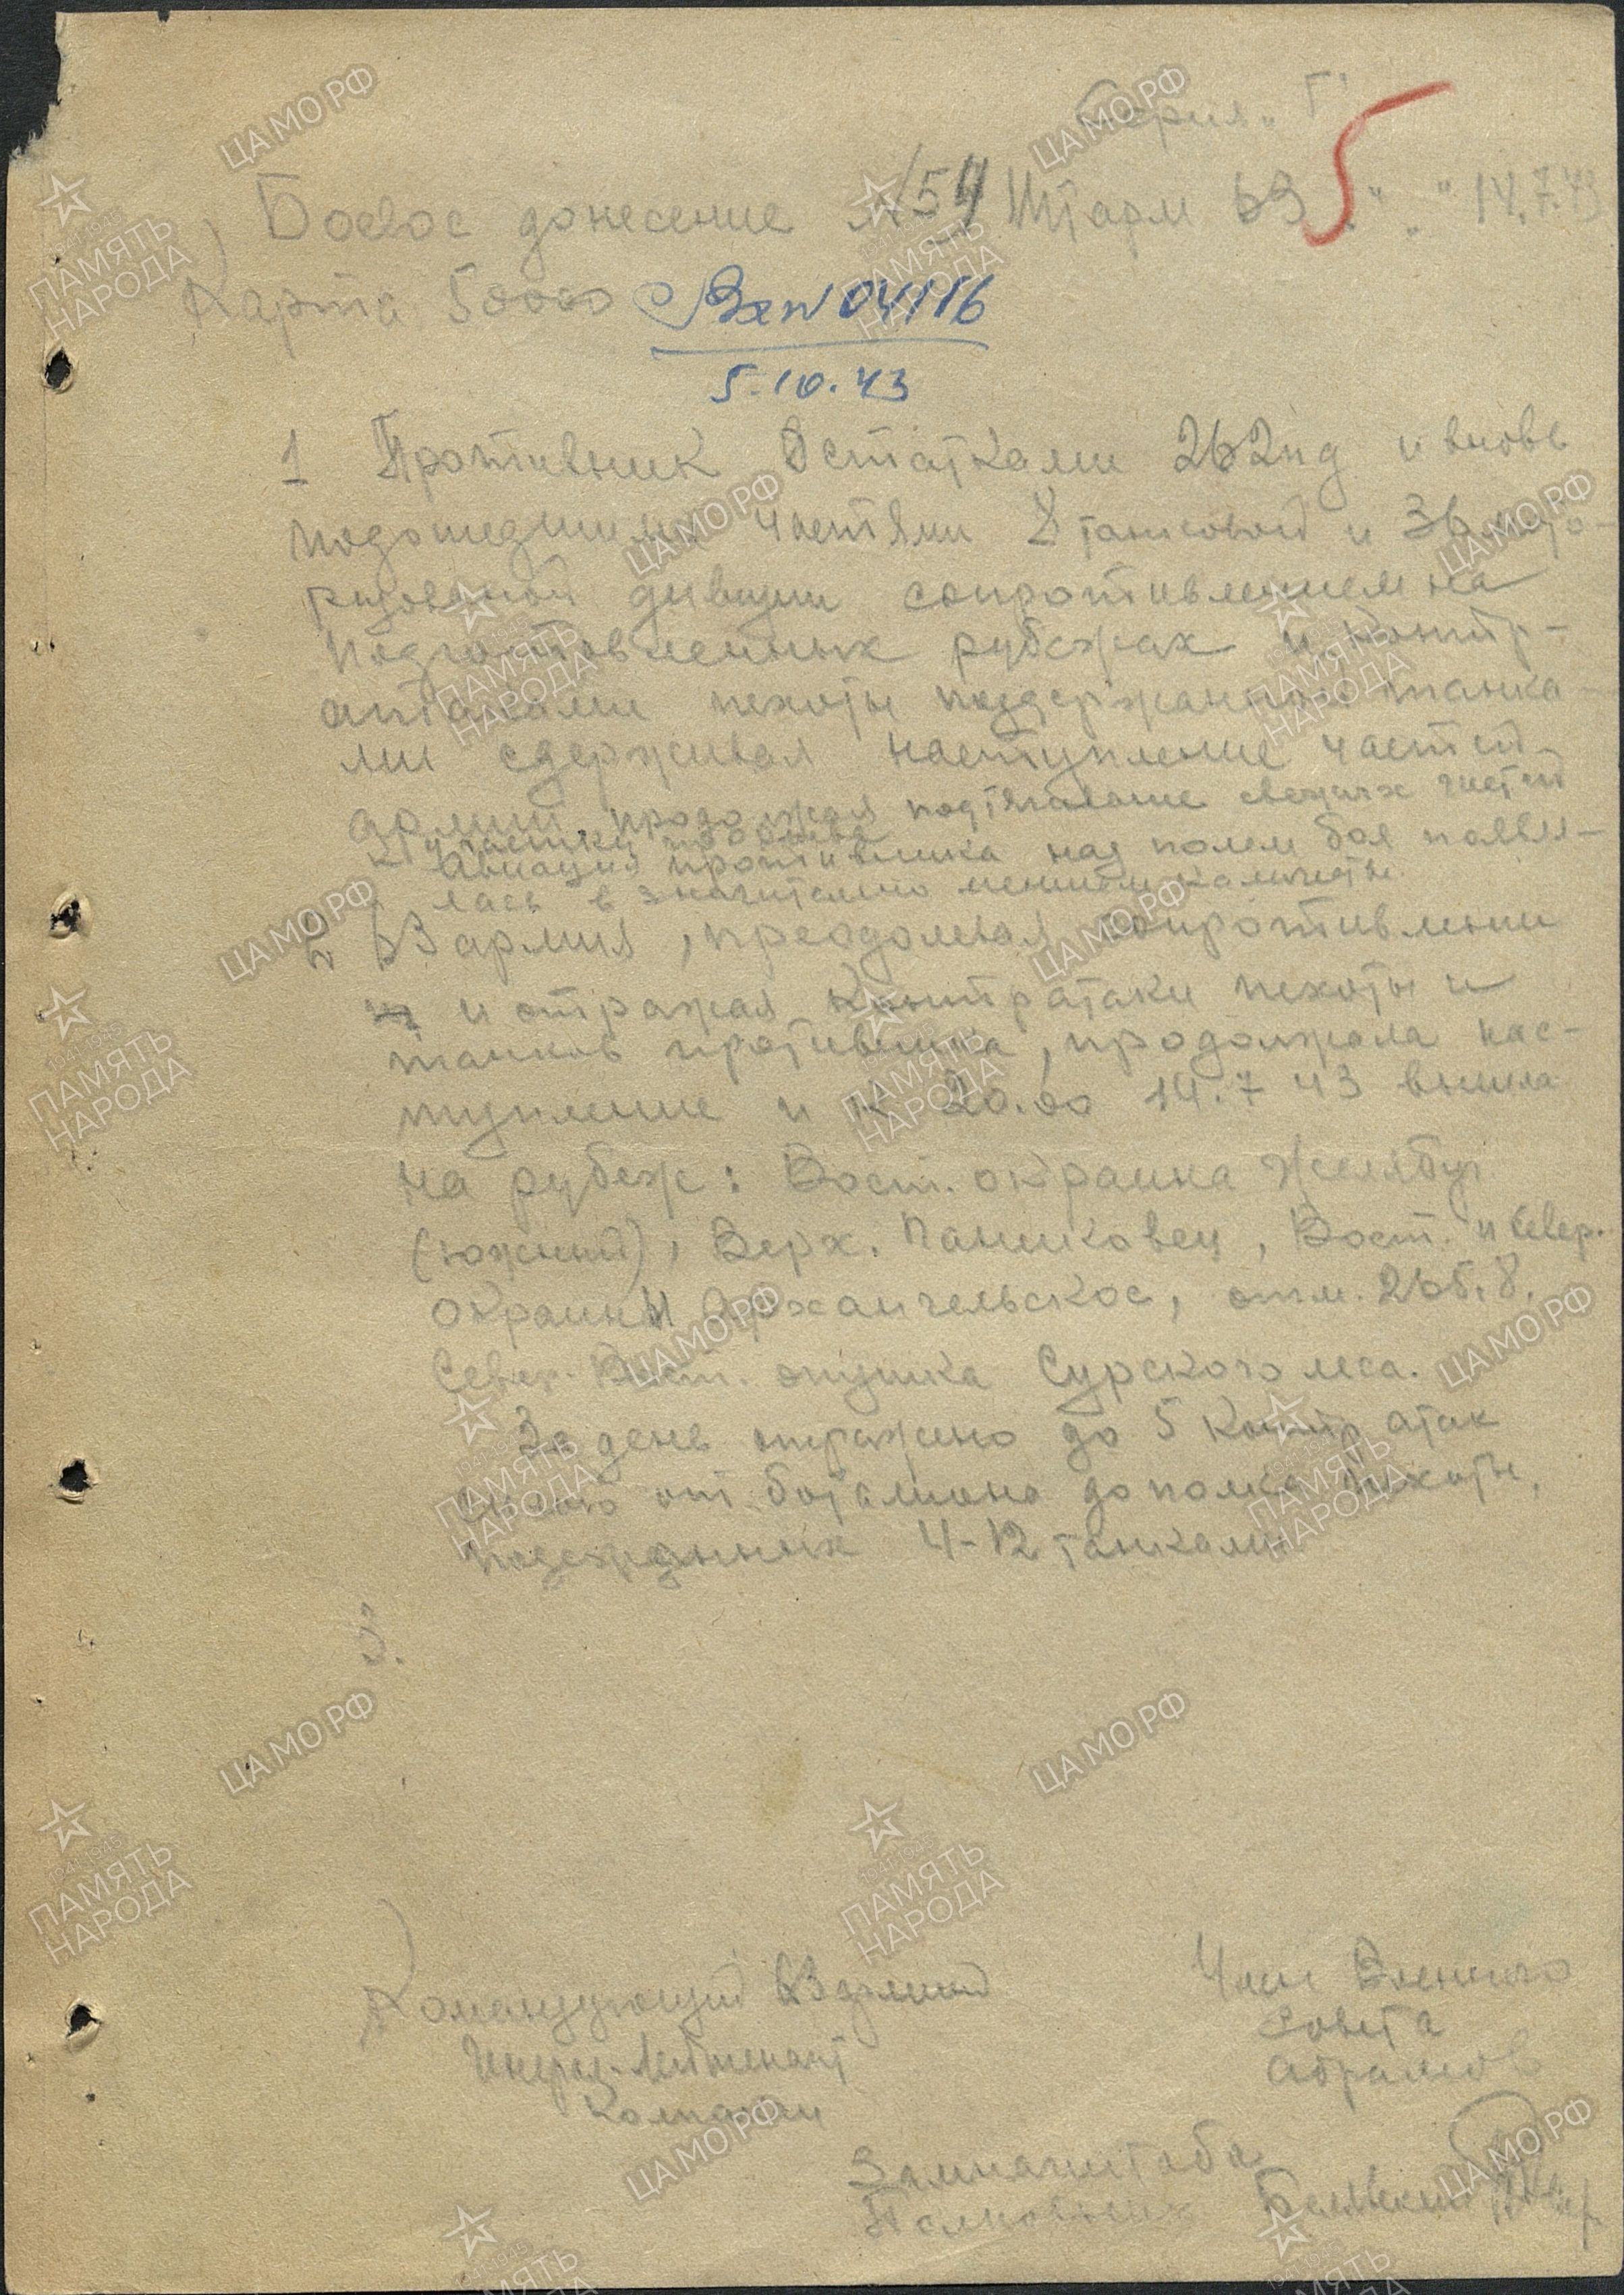 Серия „Г"
5
Боевое донесение №154 Штарм 63 „ " 14.7.43
Карта 50000
Вх№ 04116
5.10.43
1 Противник остатками 262пд и вновь
подошедшими частями 8 танковой и 36 мото-
ризованой дивизии сопротивлением на
подготовленных рубежах и контр-
атаками пехоты поддержанной танка-
ми сдерживал наступление частей
армии, продолжая подтягивание свежих частей
к участку прорыва
Авиация противника над полем боя появи-
лась в значительно меньшем количестве.
2 63 армия, преодолевая сопротивление
и отражая контратаки пехоты и
танков противника, продолжала нас-
тупление и к 20.00 14.7 43 вышла
на рубеж: Вост. окраина Желябуг
(южный), Верх. Паниковец, Вост. и Север.
окраины Архангельское, отм. 265.8.
Север. Вост. опушка Сурского леса.
За день отражено до 5 контр атак
силою от баталиона до полка пехоты,
4-12 танками
3.
Командующий 63 армией
Генерал-Лейтенант
Колпакчи
Член Военного
Совета
Абрамов
Замначштаба
Полковник